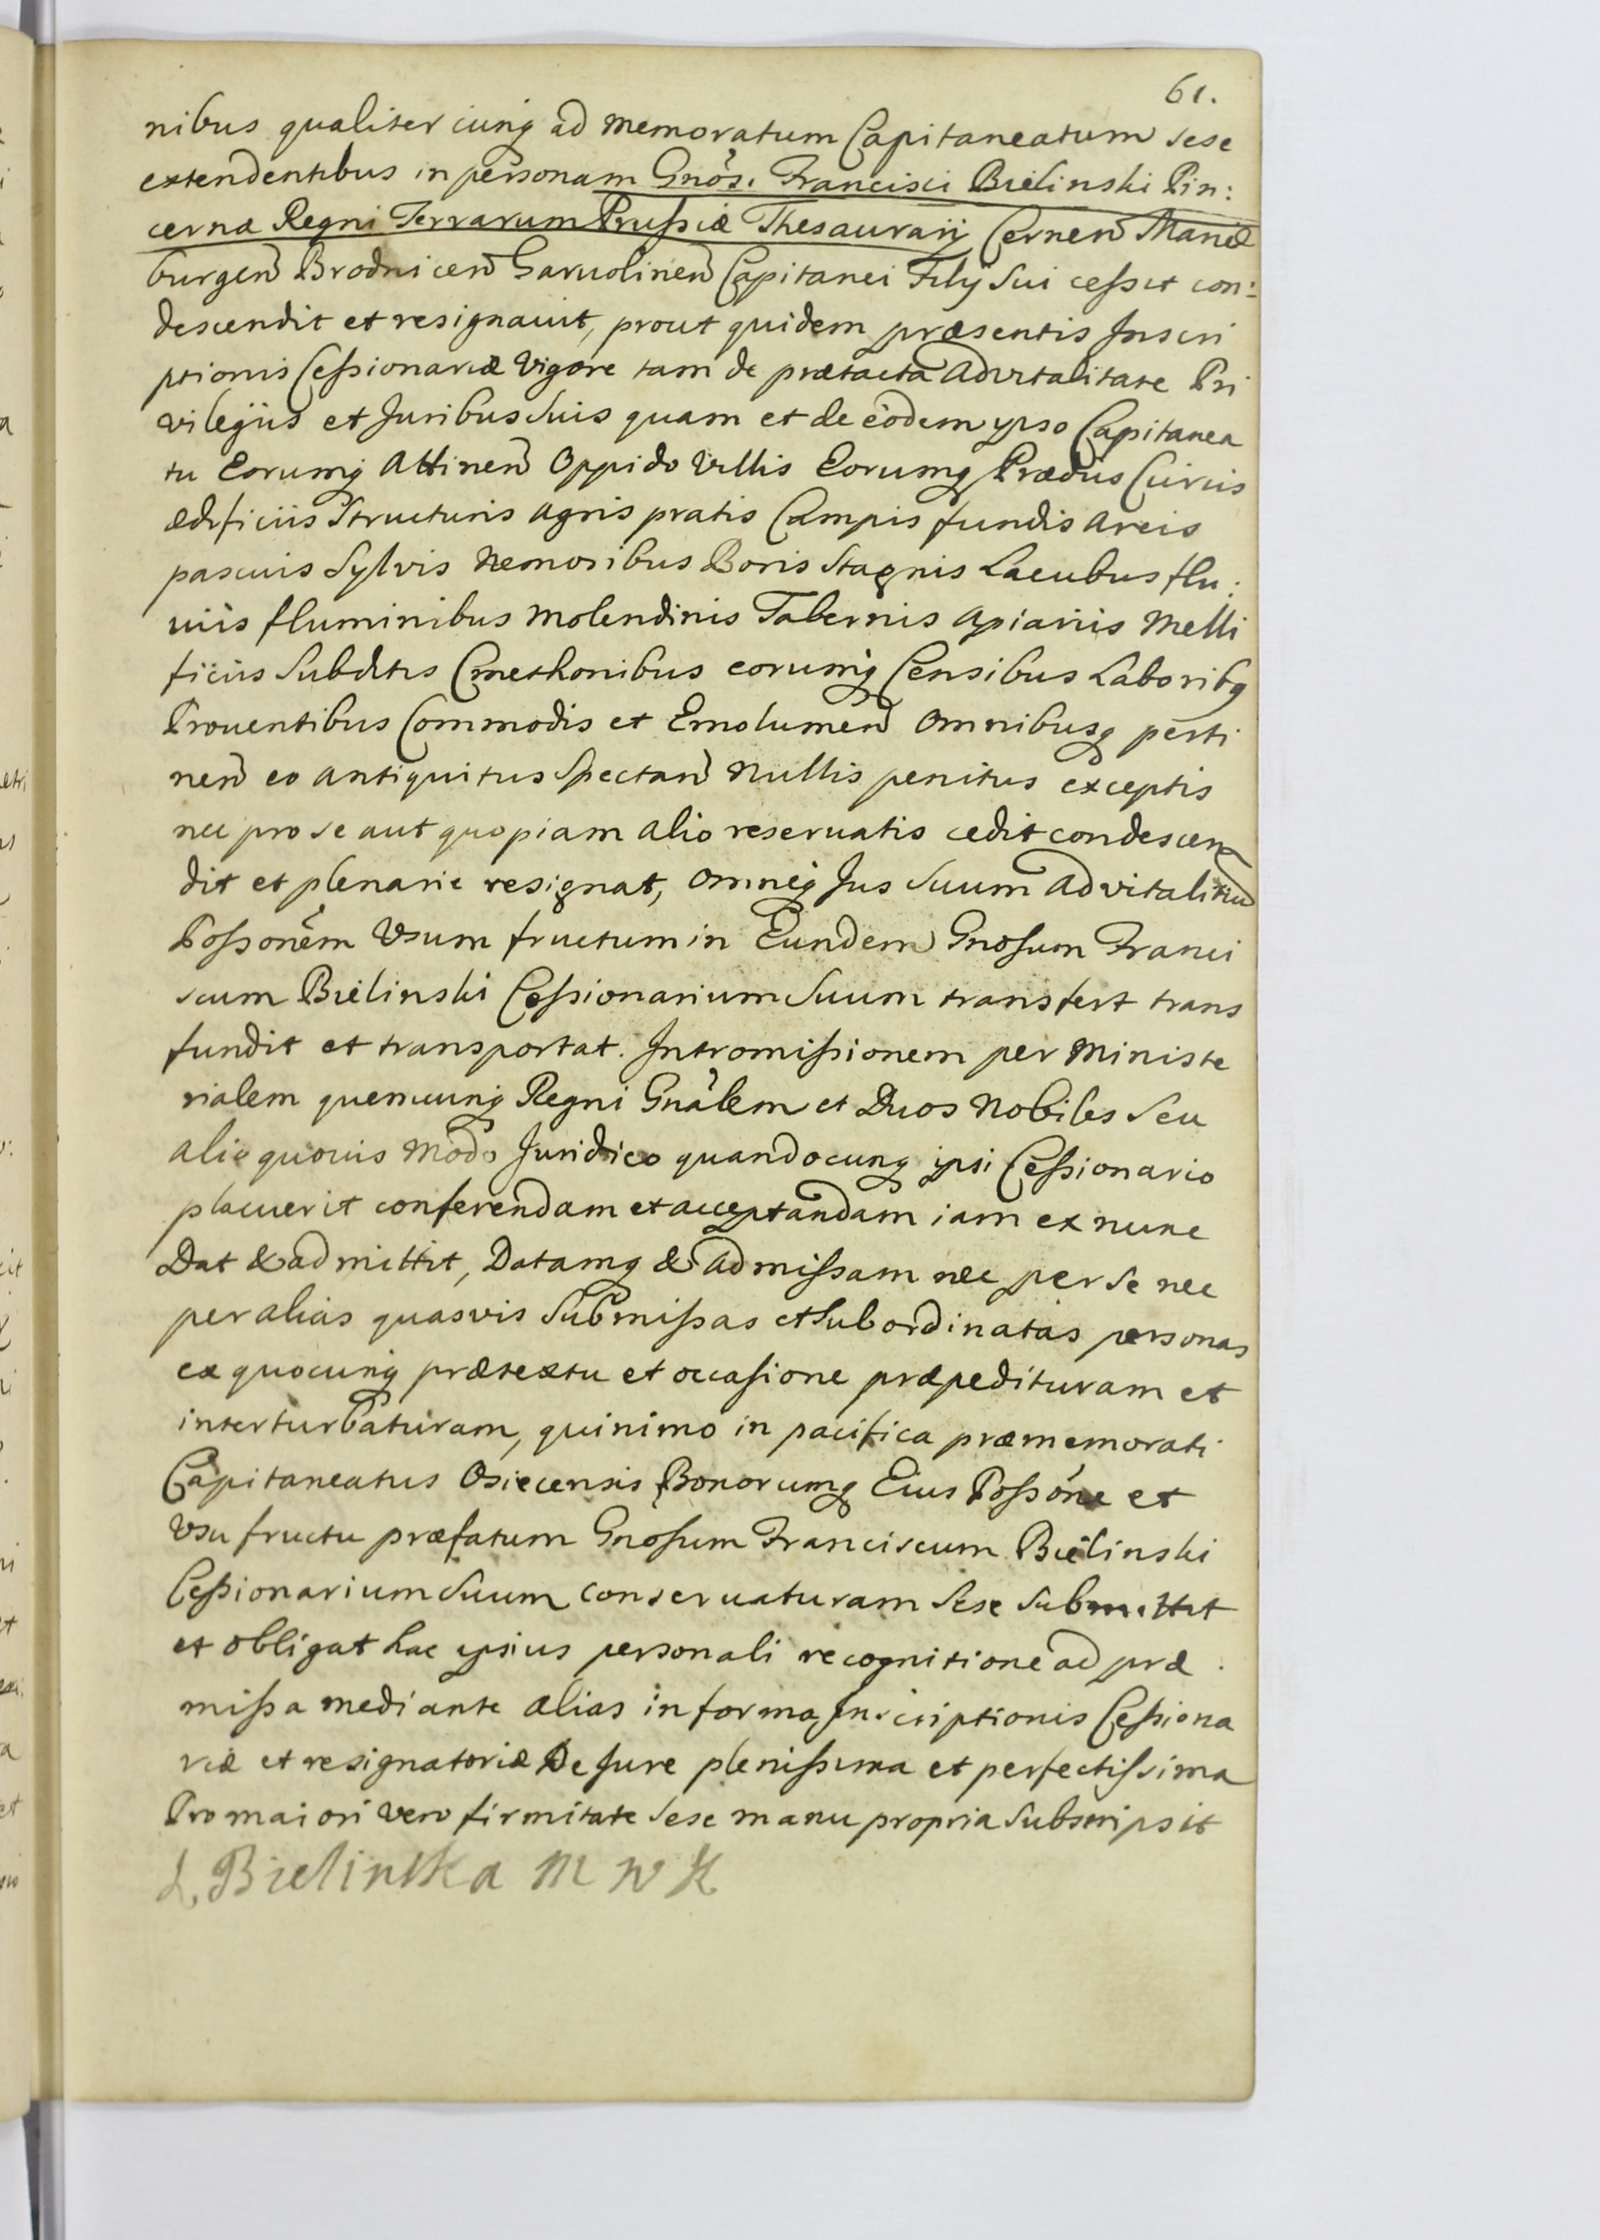 61.
nibus qualiter cunq ad memoratum Capitaneatum sese
extendentibus in personam Gnos. Francisci Bielinski Pin:
cernæ Regni Terrarum Prussiæ Thesaurarij Cernen Mariæ
burgen Brodnicen Garuolinen Capitanei Filij sui cessit con:
descendit et resignauit, prout quidem præsentis Inscri
ptionis Cessionariæ Vigore tam de prætacta Advitalitate Pri
vilegijs et Juribus suis quam et de eodem ipso Capitanea
tu Eorumq Attinen Oppido Villis Eorumq Prædijs Curiis
ædificiis Structuris agris pratis Campis fundis areis
pascuis Sylvis Nemoribus Boris Stagnis Lacubus flu:
uiis fluminibus Molendinis Tabernis Apiariis Melli
ficiis Subditis Cmethonibus eorumq Censibus Laboribq
Prouentibus Commodis et Emolumen Omnibusq perti
nen eo antiquitus Spectan Nullis penitus exceptis
nec pro se aut quopiam alio reseruatis cedit condescen
dit et plenarie resignat, Omneq Jus Suum Advitalitium
Possonem Vsum fructum in Eundem Gnosum Franci
scum Bielinski Cessionarium Suum transfert trans
fundit et transportat. Intromissionem per Ministe
rialem quemcunq Regni Gnalem et Duos Nobiles Seu
alio quouis modo Juridico quandocunq ipsi Cessionario
placuerit conferendam et acceptandam iam ex nunc
Dat & admittit, Datamq & Admissam nec per se nec
per alias quasvis Submissas et Subordinatas personas
ex quocunq prætextu et occasione præpedituram et
interturbaturam, quinimo in pacifica præmemorati
Capitaneatus Osiecensis Bonorumq Eius Possone et
Vsu fructu præfatum Gnosum Franciscum Bielinski
Cessionarium Suum conseruaturam Sese Submittit
et obligat hac ipsius personali recognitione ad præ
missa mediante alias in forma Inscriptionis Cessiona
riæ et resignatoriæ De Jure plenissima et perfectissima
Pro maiori vero firmitate Sese manu propria subscripsit
L Bielinska M W K